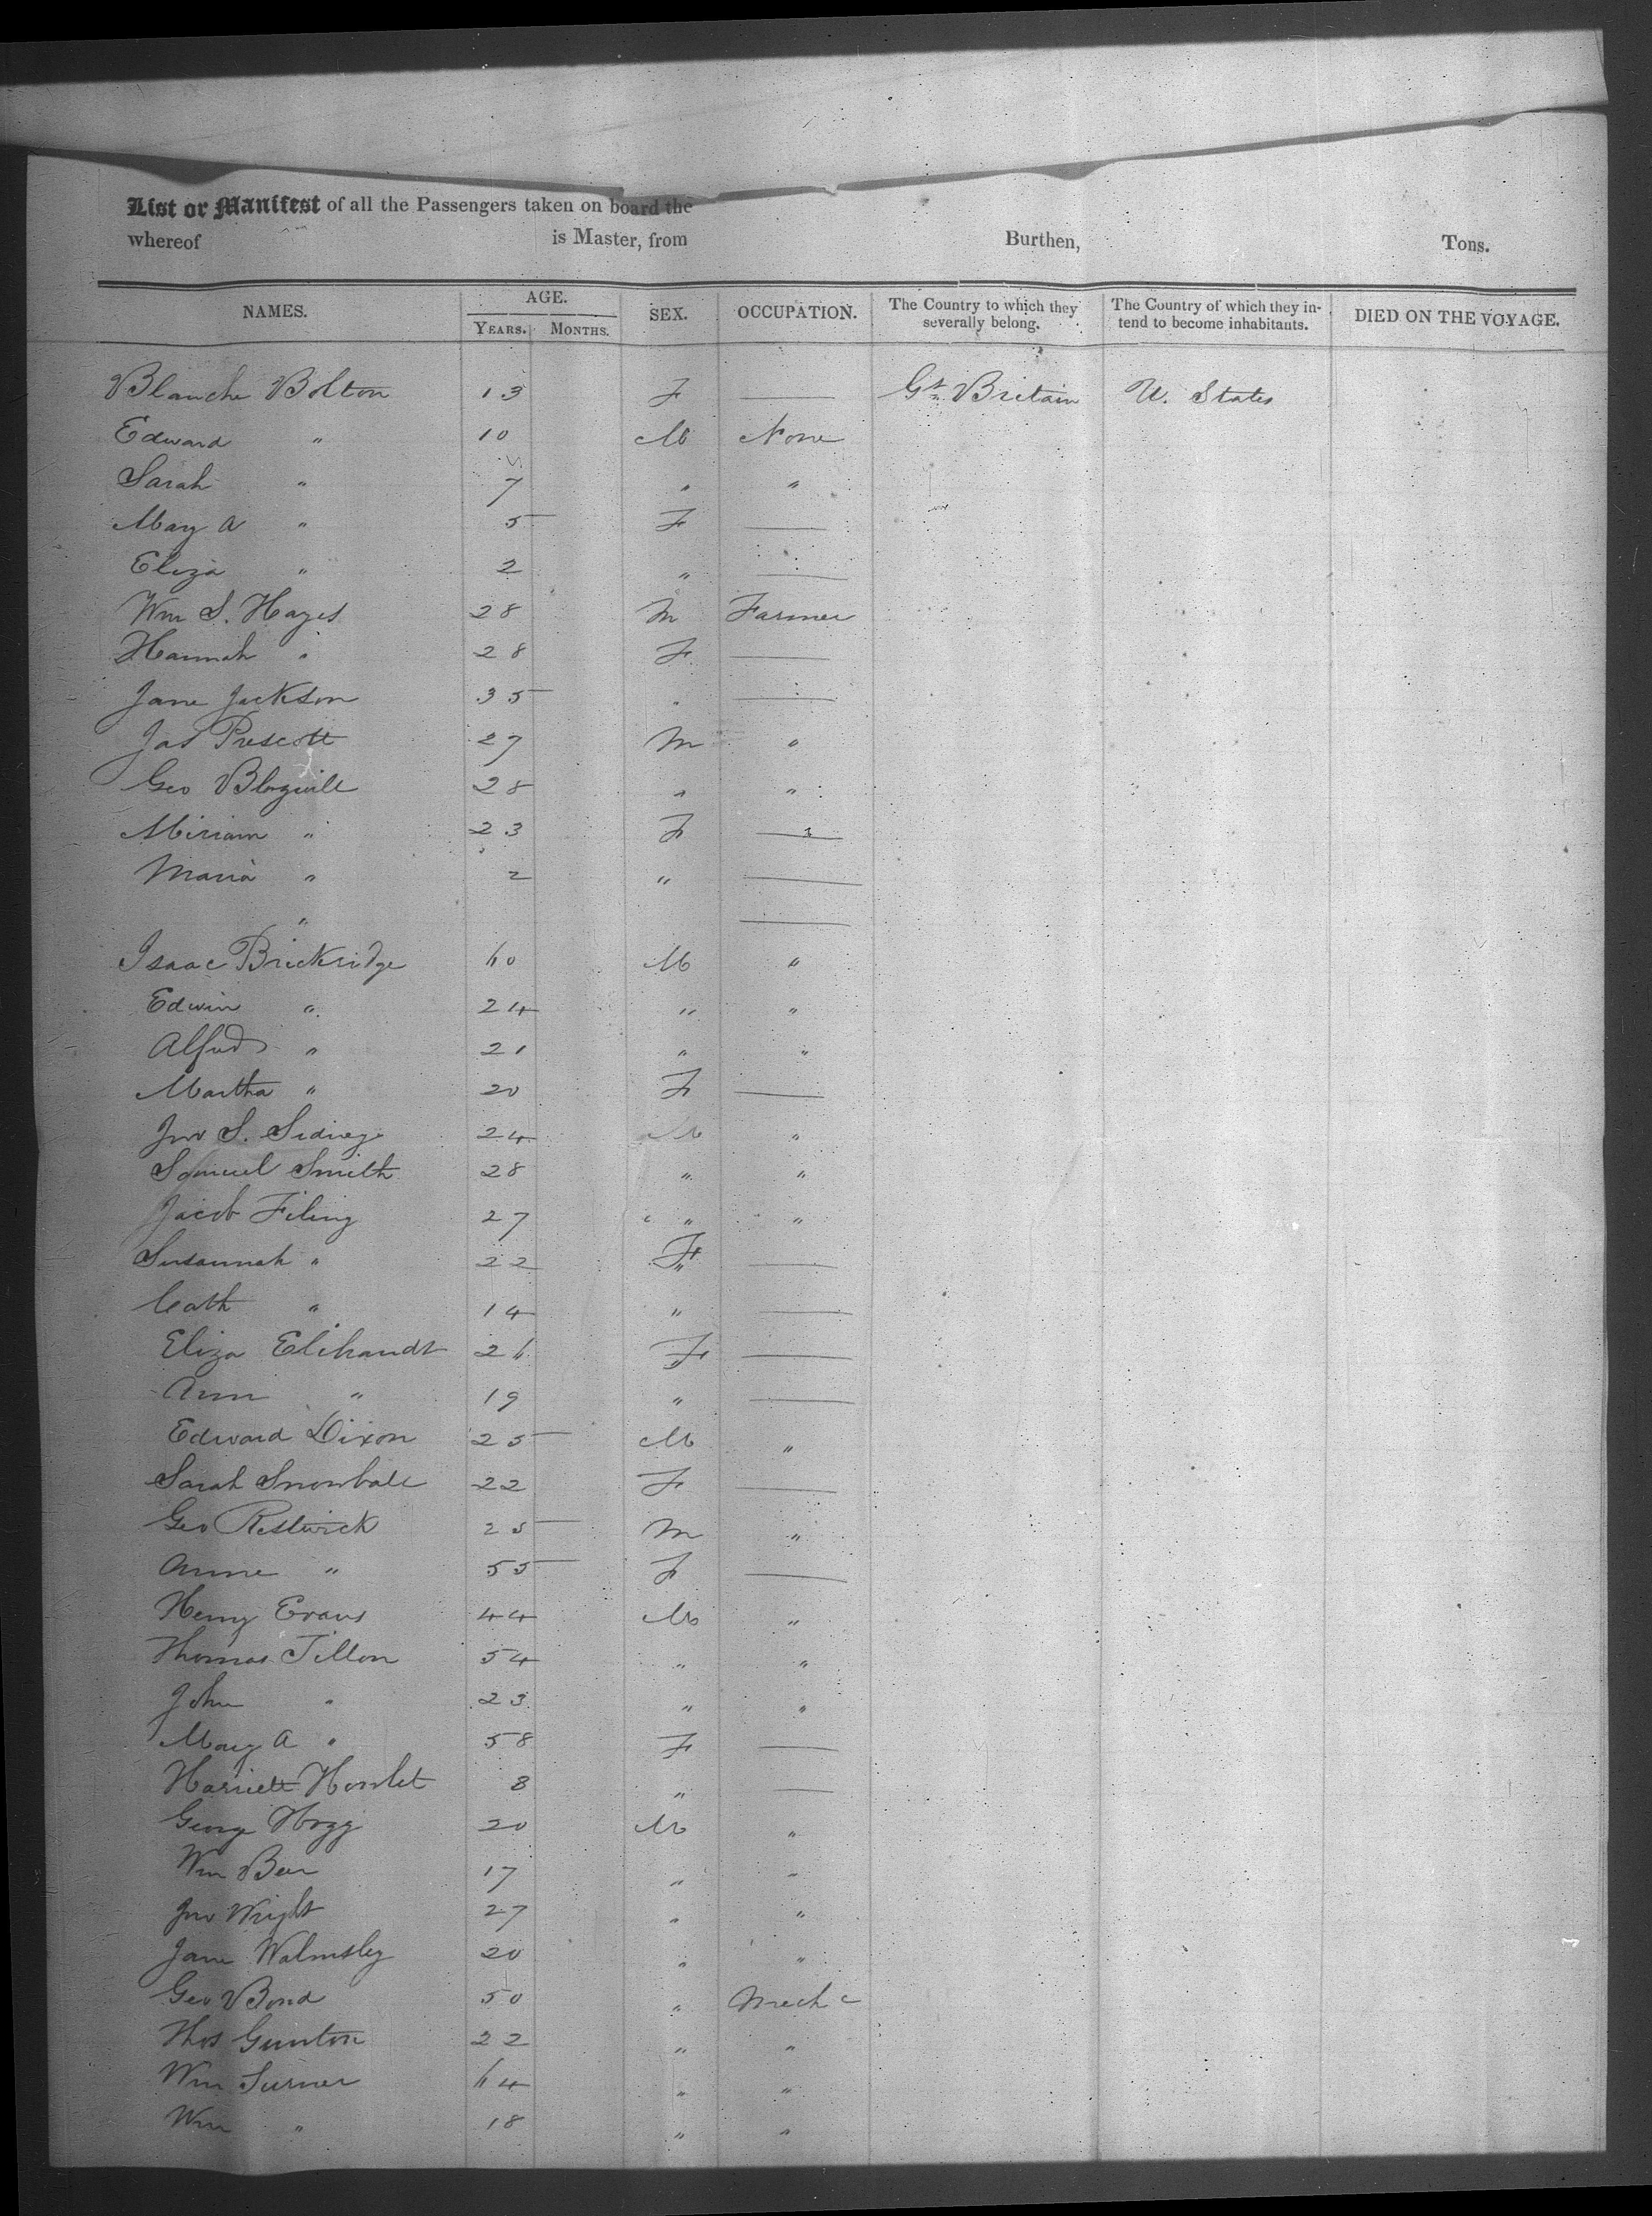 List or Manifest of all the Passengers taken on board the
whereof is Master, from Burthen, Tons.
NAMES. AGE. YEARS. MONTHS. SEX. OCCUPATION. The Country to which they severally belong. The Country of which they intend to become inhabitants. DIED ON THE VOYAGE.
Blanche Bolton 13 F — Gt Britain U. States
Edward " 10 M None
Sarah " 7 " "
Mary A " 5 F —
Eliza " 2 " —
Wm S. Hayes 28 M Farmer
Hannah " 28 F —
Jane Jackson 35 " —
Jas Prescott 27 M "
Geo 28 " "
Miriam " 23 F —
Maria " 2 " —
" —
Isaac Brickridge 60 M "
Edwin " 24 " "
Alfred " 21 " "
Martha " 20 F —
Jno S. 24 M "
Samuel Smith 28 " "
Jacob Filing 27 " "
Susannah " 22 F —
Cath " 14 " —
Eliza Elihandt 26 F —
Ann " 19 " —
Edward Dixon 25 M "
Sarah Snowball 22 F —
Geo Restwick 25 M "
Anne " 55 F —
Henry Evans 44 M "
Thomas Tillon 54 " "
John " 23 " "
Mary A " 58 F —
Harriett 8 " —
George Hogg 20 M "
Wm Beer 17 " "
Jno Wright 27 " "
Jane Walmsley 20 " "
Geo Bond 50 " Mechc
Thos Gunton 22 " "
Wm Turner 64 " "
Wm " 18 " "